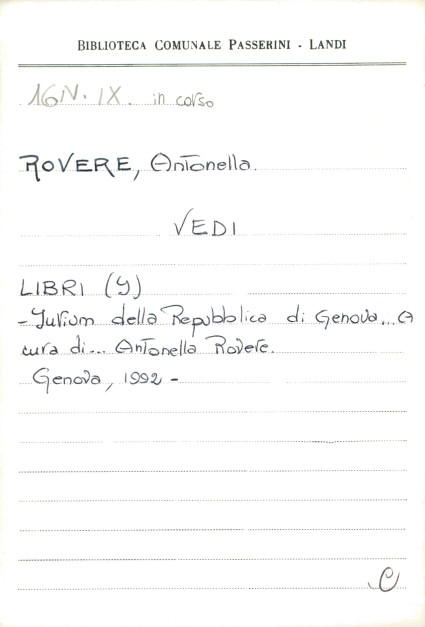 BIBLIOTECA COMUNALE PASSERINI - LANDI
16N. IX. in corso
ROVERE, Antonella.
VEDI
LIBRI (I)
- Iurium della Repubblica di Genova... A
cura di... Antonella Rovere.
Genova, 1992 -
C